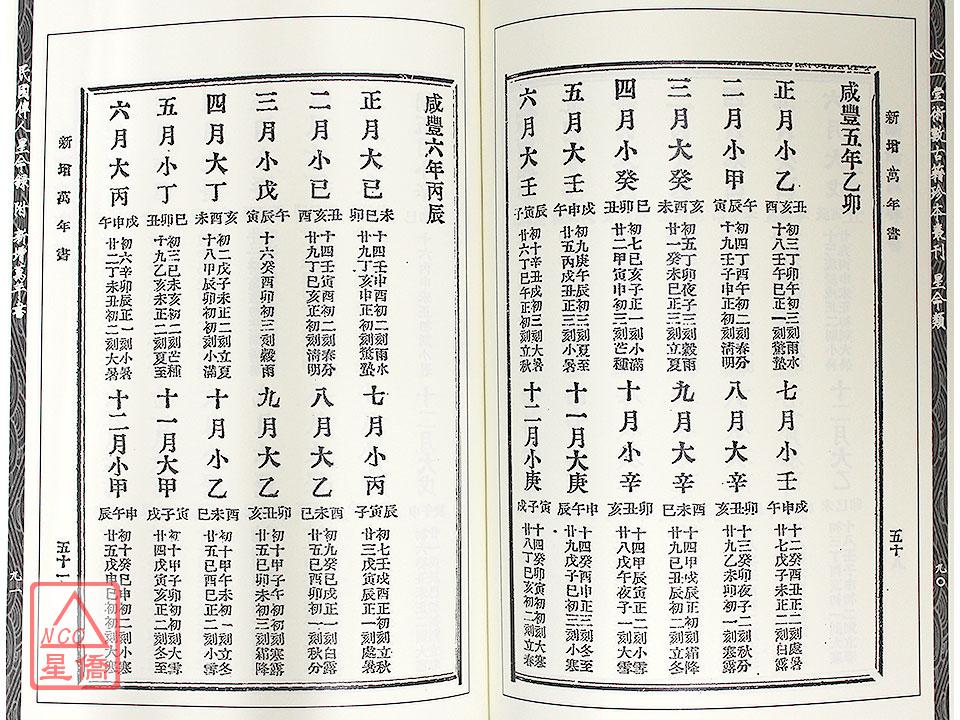 新增萬年書
咸豐五年乙卯
正月小乙
丑亥酉
初三丁卯午初三刻雨水
十八壬午巳正初三刻驚蟄
二月小甲
午辰寅
十九壬子申正初二刻清明
三月大癸
亥酉未
初五丁卯夜子三刻穀雨
廿一癸未巳正三刻立夏
四月小癸
巳卯丑
初七己亥子正一刻小滿
廿二甲寅申初三刻芒種
五月大壬
戌申午
初九庚午辰初三刻夏至
廿五丙戌丑正三刻小暑
六月大壬
辰寅子
初十辛丑戌初三刻大暑
廿六丁巳午初三刻立秋
七月小壬
戌申午
十二癸酉丑正二刻處暑
廿七戊子未正二刻白露
八月大辛
卯丑亥
十三癸卯夜子初二刻秋分
廿九己未卯初一刻寒露
九月大辛
酉未巳
十四甲戌辰正初刻霜降
廿九己丑辰初二刻立冬
十月小辛
卯丑亥
十四甲辰寅正二刻小雪
廿八戊午夜子一刻大雪
十一月大庚
申午辰
十四癸酉申正三刻冬至
廿九戊子巳初三刻小寒
十二月小庚
寅子戌
十四癸卯寅初初刻大寒
廿八丁巳亥初二刻立春
五十
九〇
咸豐六年丙辰
正月大己
未巳卯
十四壬申酉初二刻雨水
廿九丁亥申正初刻驚蟄
二月小己
丑亥酉
十四壬寅酉初二刻春分
廿九丁巳亥正初刻清明
三月小戊
午辰寅
十六癸酉卯初三刻穀雨
四月大丁
亥酉未
初二戊子未正二刻立夏
十八甲辰卯初初刻小滿
五月小丁
丑卯巳
初三己未亥初二刻芒種
十九乙亥未正二刻夏至
六月大丙
戌申午
初六辛卯辰正一刻小暑
廿二丁未丑初二刻大暑
七月小丙
辰寅子
初七壬戌酉正初刻立秋
廿三戊寅辰正一刻處暑
八月大乙
酉未巳
初九癸巳戌正一刻白露
廿五己酉卯初一刻秋分
九月大乙
卯丑亥
初十甲子午初初刻寒露
廿五己卯未初三刻霜降
十月小乙
酉未巳
初十甲午未初一刻立冬
廿五己酉巳正二刻小雪
十一月大甲
寅子戌
初十甲子卯初初刻大雪
廿四戊寅亥正二刻冬至
十二月小甲
申午辰
初十癸巳申初二刻小寒
廿五戊申巳初初刻大寒
新增萬年書
五十一
九一
NCC
星僑